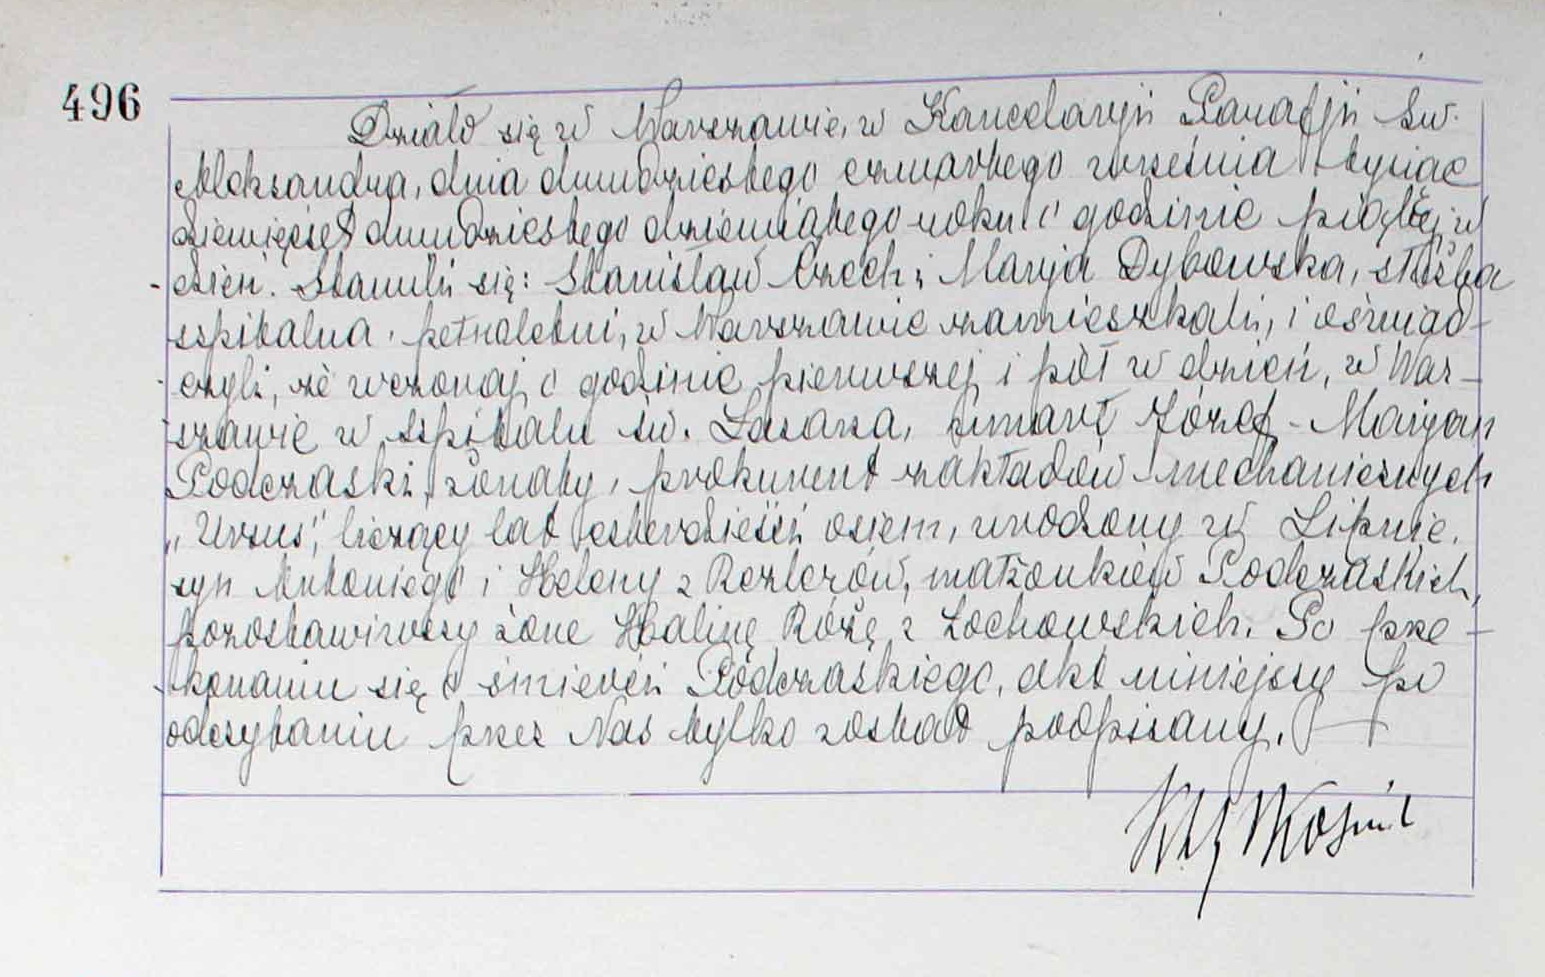 496
Działo się w Warszawie, w Kancelaryji Parafji Św.
Aleksandra, dnia dwudziestego czwartego września tysiąc
dziewięćset dwudziestego dziewiątego roku o godzinie piątej w
dzień. Stawili się: Stanisław Czech i Marja Dybowska, służba
szpitalna, pełnoletni, w Warszawie zamieszkali, i oświad-
czyli, że wczoraj o godzinie pierwszej i pół w dzień, w War-
szawie w szpitalu św. Łazarza, zmarł Józef-Maryan
Podczaski, żonaty, prokurent zakładów mechanicznych
„Ursus", liczący lat czterdzieści osiem, urodzony w Lipnie,
syn Antoniego i Heleny z Rezlerów, małżonków Podczaskich,
pozostawiwszy żonę Halinę Różę z Łochowskich. Po prze-
konaniu się o śmierci Podczaskiego, akt niniejszy po
odczytaniu przez Nas tylko został podpisany.